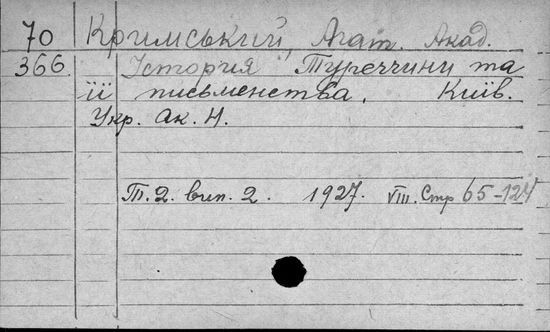 70 Кримський, Агат. Акад.
366 Історія Туреччини та
її письменства. Київ.
Укр. Ак. Н.
Т. 2. вип. 2. 1927. VIII. Стр 65-124